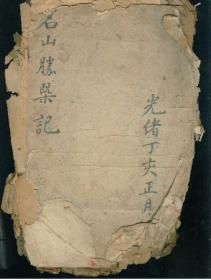 光緒丁亥正月
名山勝槩記